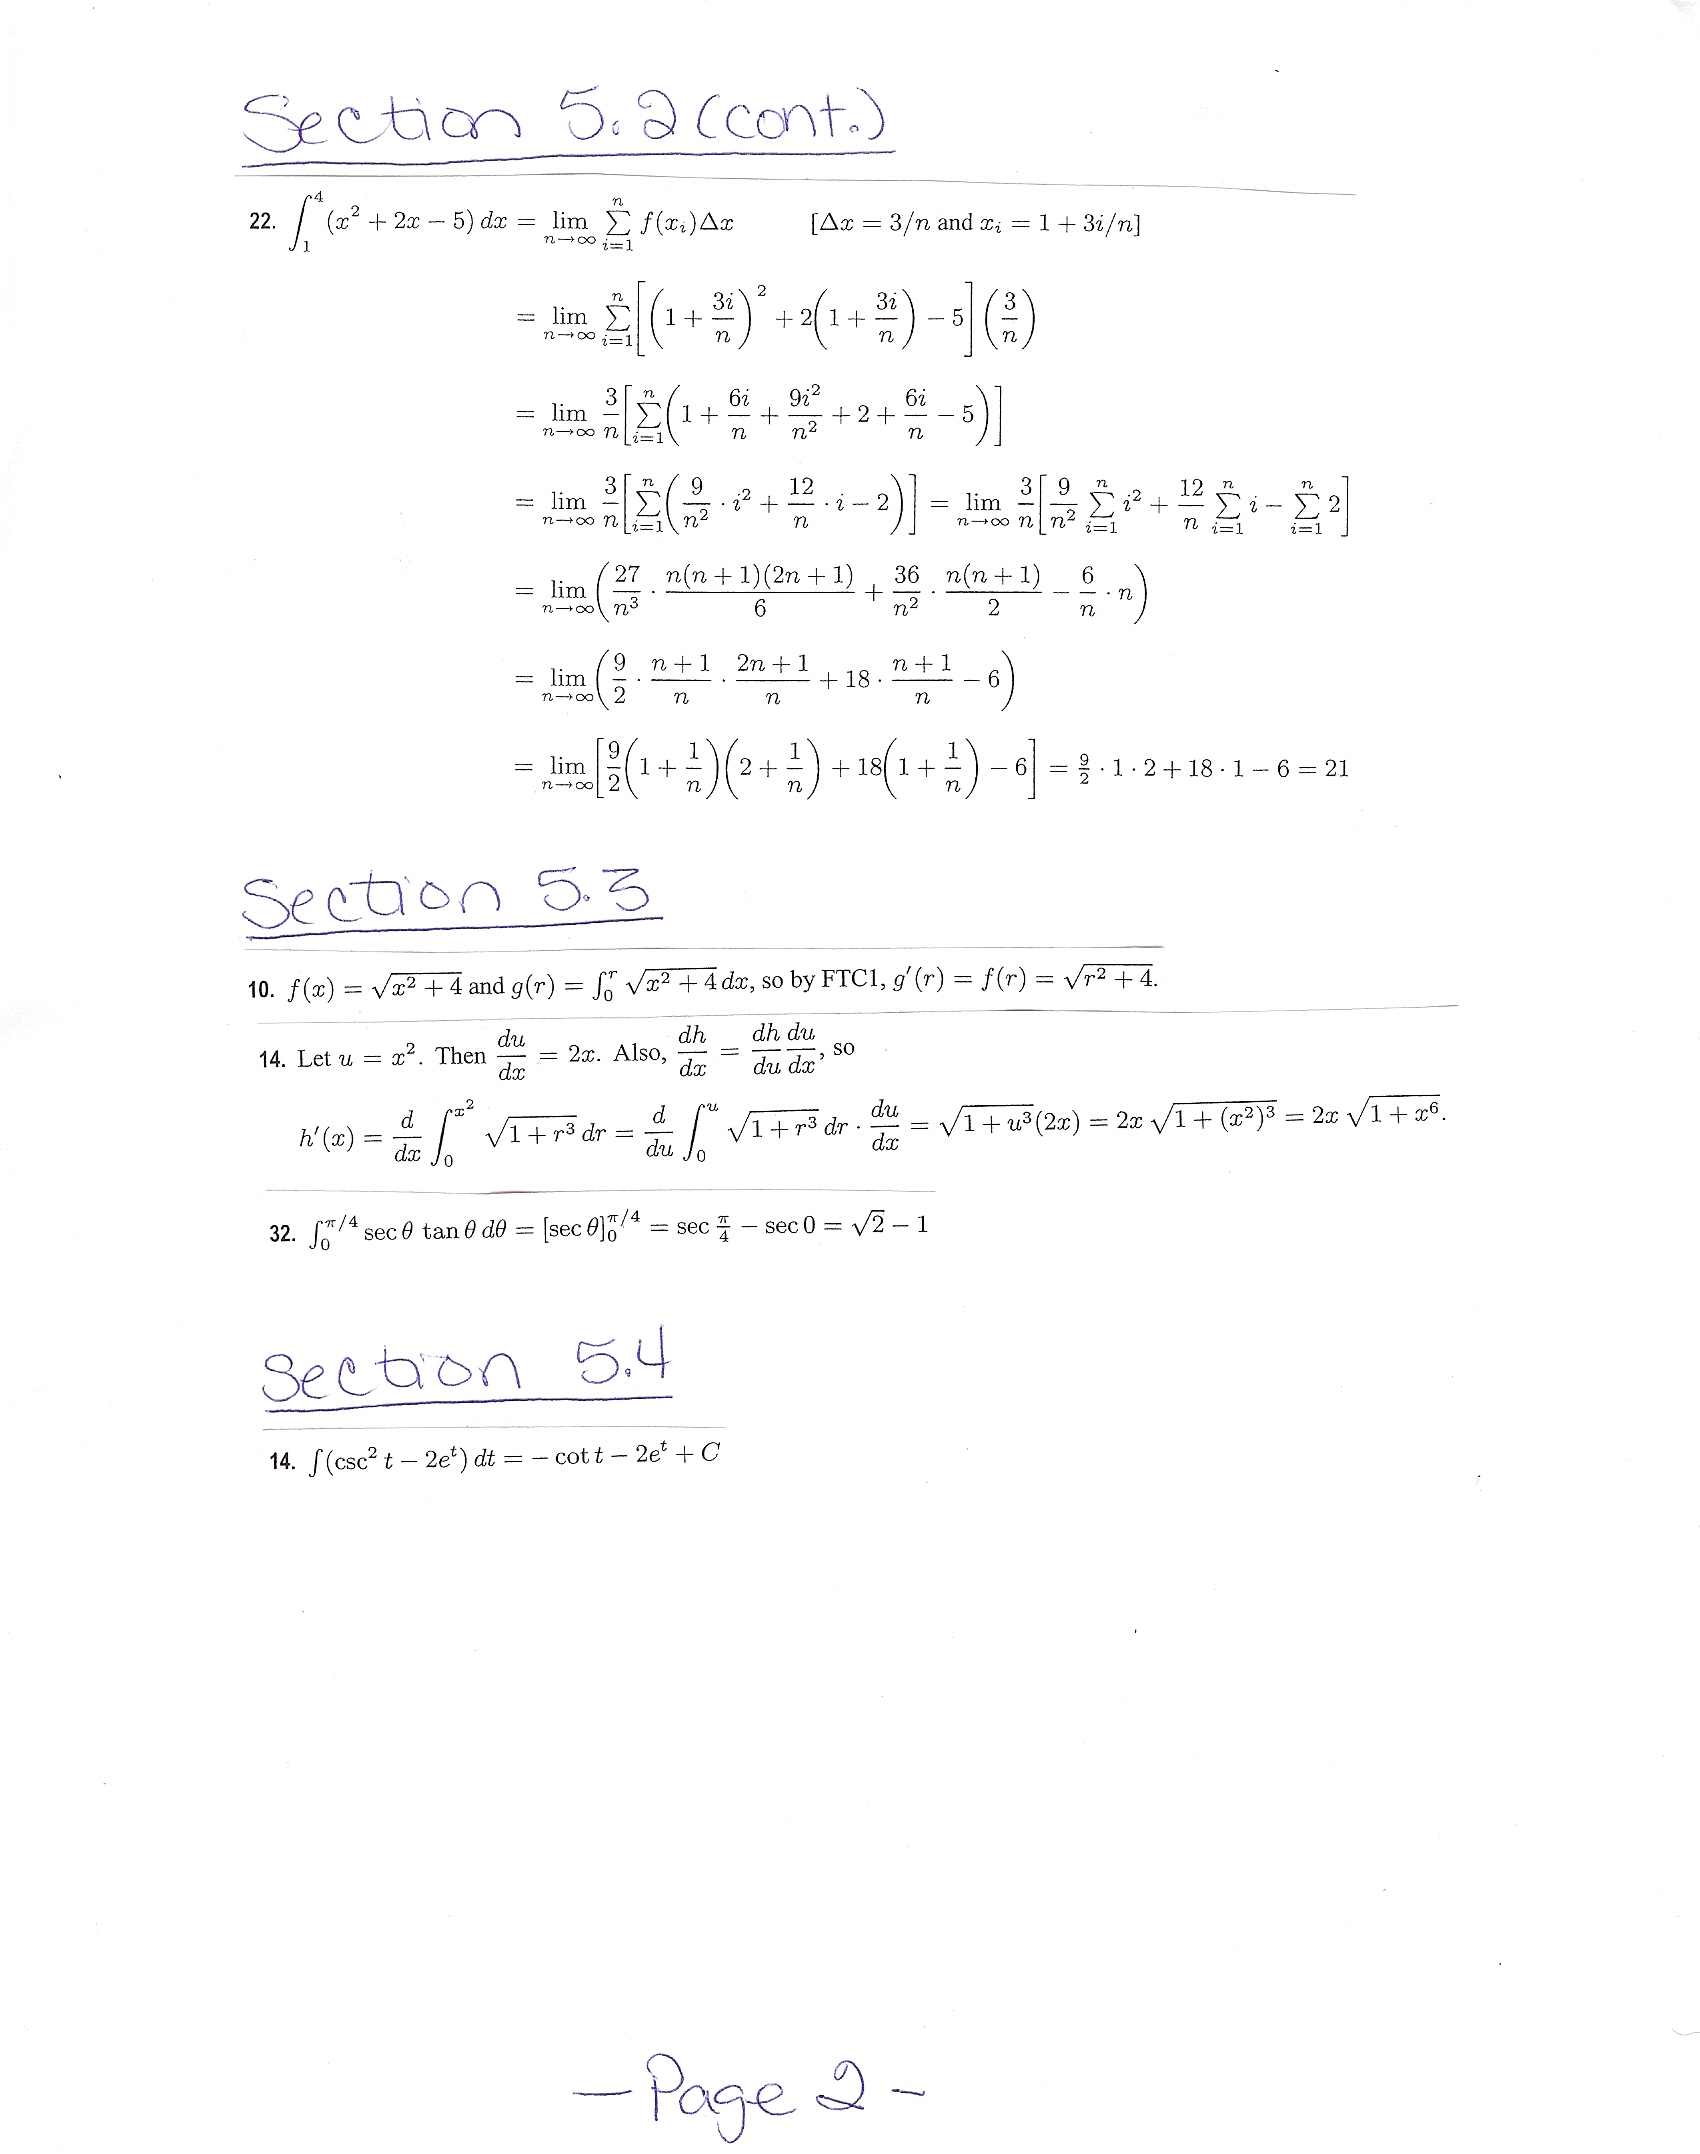 Section 5.2 (cont.)
22. ∫₁⁴ (x² + 2x − 5) dx = lim_{n→∞} Σ_{i=1}^{n} f(x_i)Δx [Δx = 3/n and x_i = 1 + 3i/n]
= lim_{n→∞} Σ_{i=1}^{n} [(1 + 3i/n)² + 2(1 + 3i/n) − 5] (3/n)
= lim_{n→∞} 3/n [Σ_{i=1}^{n} (1 + 6i/n + 9i²/n² + 2 + 6i/n − 5)]
= lim_{n→∞} 3/n [Σ_{i=1}^{n} (9/n² · i² + 12/n · i − 2)] = lim_{n→∞} 3/n [9/n² Σ_{i=1}^{n} i² + 12/n Σ_{i=1}^{n} i − Σ_{i=1}^{n} 2]
= lim_{n→∞} (27/n³ · n(n + 1)(2n + 1)/6 + 36/n² · n(n + 1)/2 − 6/n · n)
= lim_{n→∞} (9/2 · (n + 1)/n · (2n + 1)/n + 18 · (n + 1)/n − 6)
= lim_{n→∞} [9/2 (1 + 1/n)(2 + 1/n) + 18(1 + 1/n) − 6] = 9/2 · 1 · 2 + 18 · 1 − 6 = 21
Section 5.3
10. f(x) = √(x² + 4) and g(r) = ∫₀^r √(x² + 4) dx, so by FTC1, g′(r) = f(r) = √(r² + 4).
14. Let u = x². Then du/dx = 2x. Also, dh/dx = dh/du du/dx, so
h′(x) = d/dx ∫₀^{x²} √(1 + r³) dr = d/du ∫₀^u √(1 + r³) dr · du/dx = √(1 + u³)(2x) = 2x √(1 + (x²)³) = 2x √(1 + x⁶).
32. ∫₀^{π/4} sec θ tan θ dθ = [sec θ]₀^{π/4} = sec π/4 − sec 0 = √2 − 1
Section 5.4
14. ∫(csc² t − 2eᵗ) dt = − cot t − 2eᵗ + C
— Page 2 –